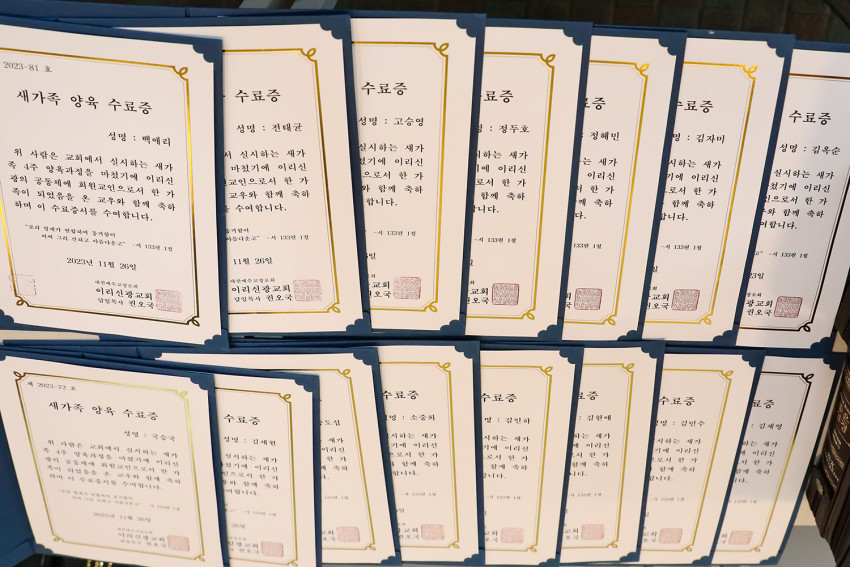 2023-81 호
새가족 양육 수료증
성명 : 백애리
위 사람은 교회에서 실시하는 새가
족 4주 양육과정을 마쳤기에 이리신
광의 공동체에 회원교인으로서 한 가
족이 되었음을 온 교우와 함께 축하
하며 이 수료증서를 수여합니다.
"보라 형제가 연합하여 동거함이
어찌 그리 선하고 아름다운고" -시 133편 1절
2023년 11월 26일
대한예수교장로회
이리신광교회
담임목사 권오국
수료증
성명 : 전태균
서 실시하는 새가
마쳤기에 이리신
원교인으로서 한 가
교우와 함께 축하
수여합니다.
동거함이
아름다운고" -시 133편 1절
11월 26일
대한예수교장로회
이리신광교회
담임목사 권오국
수료증
성명 : 고승영
실시하는 새가
마쳤기에 이리신
인으로서 한 가
와 함께 축하
합니다.
-시 133편 1절
26일
장로회
신광교회
권오국
수료증
성명 : 정두호
실시하는 새가
쳤기에 이리신
인으로서 한 가
와 함께 축하
합니다.
-시 133편 1절
일
교회
권오국
수료증
성명 : 정혜민
하는 새가
에 이리신
로서 한 가
함께 축하
니다.
-시 133편 1절
교회
오국
수료증
성명 : 김자미
실시하는 새가
기에 이리신
으로서 한 가
와 함께 축하
합니다.
-시 133편 1절
일
교회
권오국
수료증
성명 : 김옥순
실시하는 새가
쳤기에 이리신
인으로서 한 가
와 함께 축하
합니다.
-시 133편 1절
23일
장로회
광교회
권오국
제 2023-72 호
새가족 양육 수료증
성명 : 국승국
위 사람은 교회에서 실시하는 새가
족 4주 양육과정을 마쳤기에 이리신
광의 공동체에 회원교인으로서 한 가
족이 되었음을 온 교우와 함께 축하
하며 이 수료증서를 수여합니다.
"보라 형제가 연합하여 동거함이
어찌 그리 선하고 아름다운고" -시 133편 1절
2023년 11월 26일
대한예수교장로회
이리신광교회
담임목사 권오국
수료증
성명 : 김세원
실시하는 새가
마쳤기에 이리신
교인으로서 한 가
와 함께 축하
수여합니다.
-시 133편 1절
26일
신광교회
권오국
도섭
새가
이리신
한 가
축하
1절
교회
오국
수료증
성명 : 소중희
하는 새가
에 이리신
로서 한 가
함께 축하
니다.
133편 1절
교회
오국
수료증
성명 : 김인하
시하는 새가
기에 이리신
으로서 한 가
함께 축하
니다.
133편 1절
교회
권오국
수료증
성명 : 김현애
하는 새가
에 이리신
로서 한 가
함께 축하
니다.
133편 1절
교회
오국
수료증
성명 : 김민수
하는 새가
에 이리신
로서 한 가
함께 축하
니다.
133편 1절
교회
오국
수료증
성명 : 김세영
하는 새가
에 이리신
로서 한 가
함께 축하
니다.
133편 1절
교회
오국